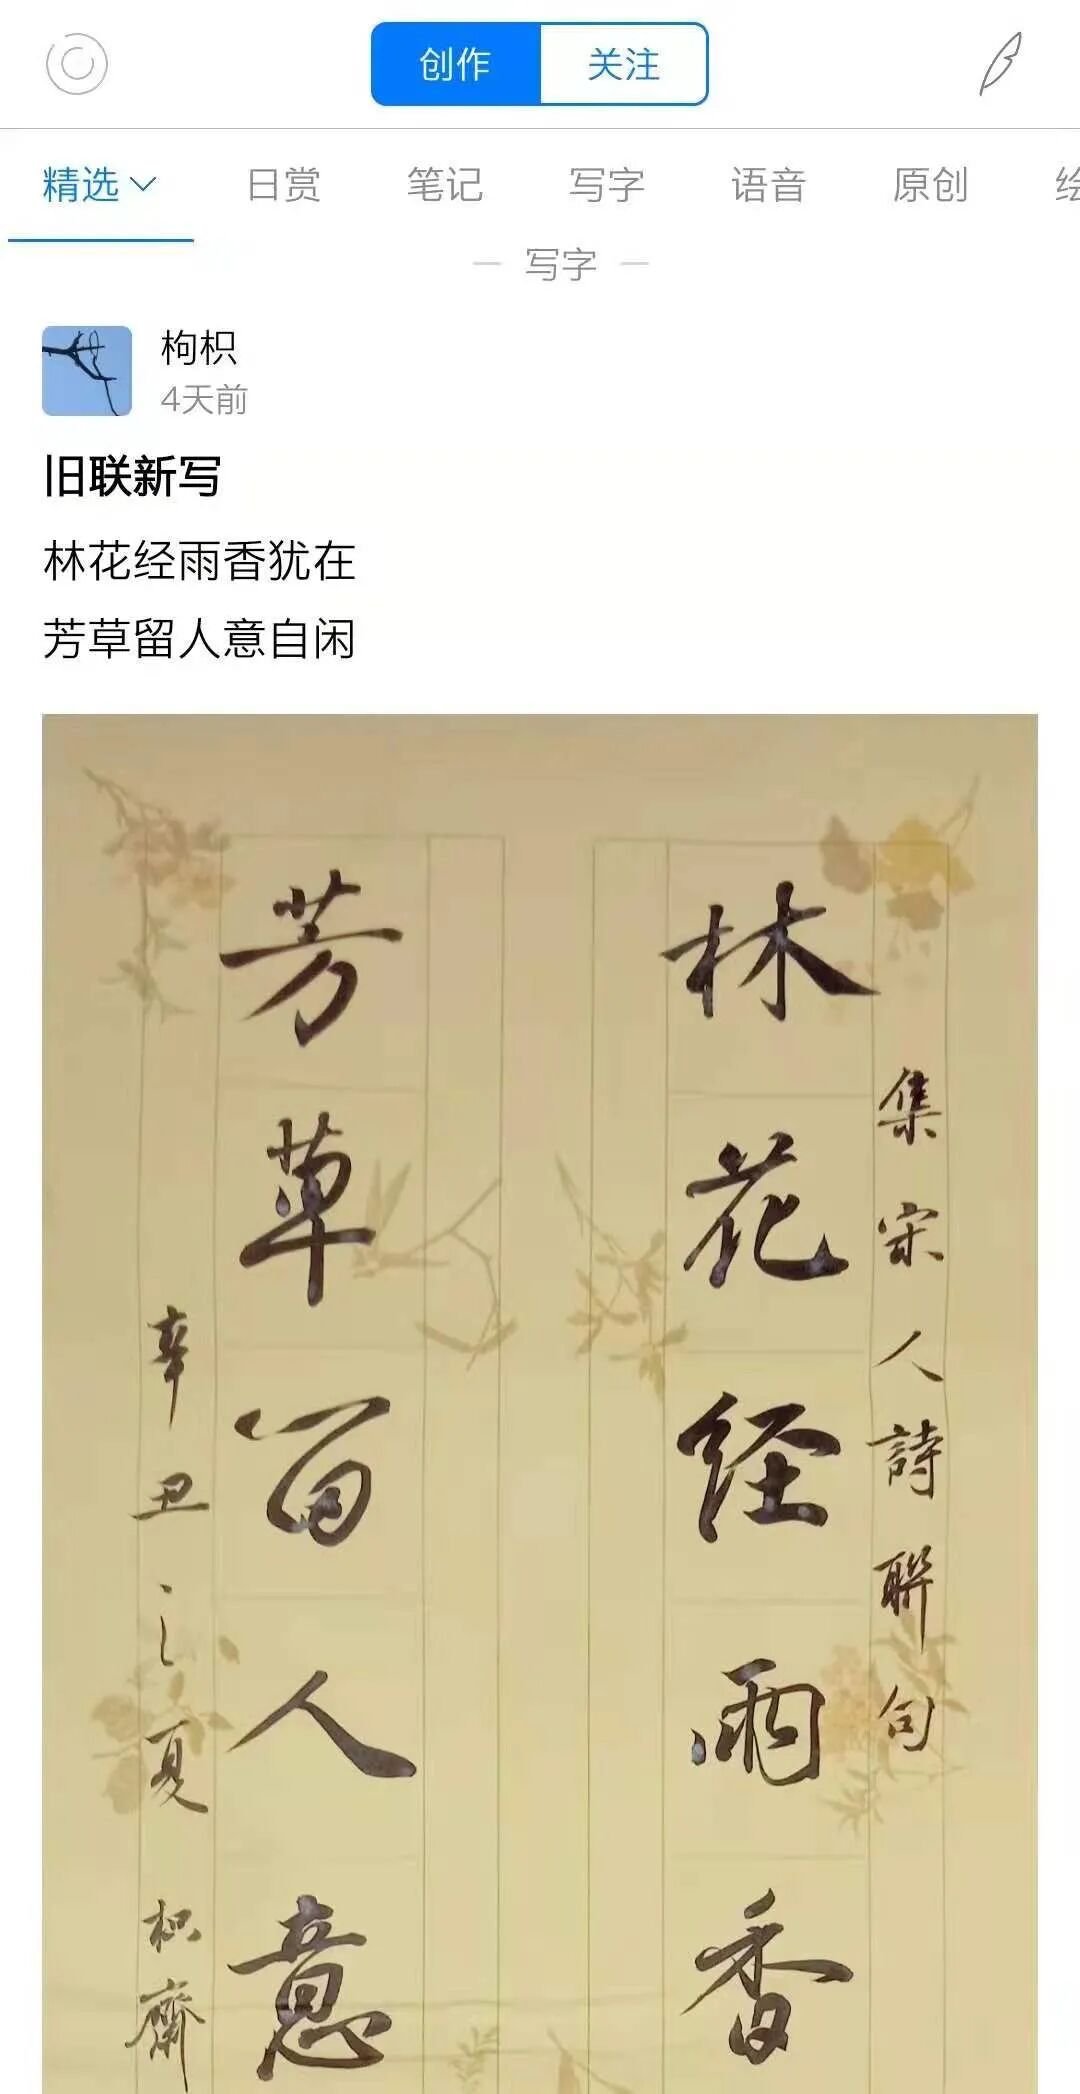 创作 关注
精选 日赏 笔记 写字 语音 原创
写字
枸枳
4天前
旧联新写
林花经雨香犹在
芳草留人意自闲
集宋人詩聯句
林花经雨香
芳草留人意
辛丑之夏 枳齋